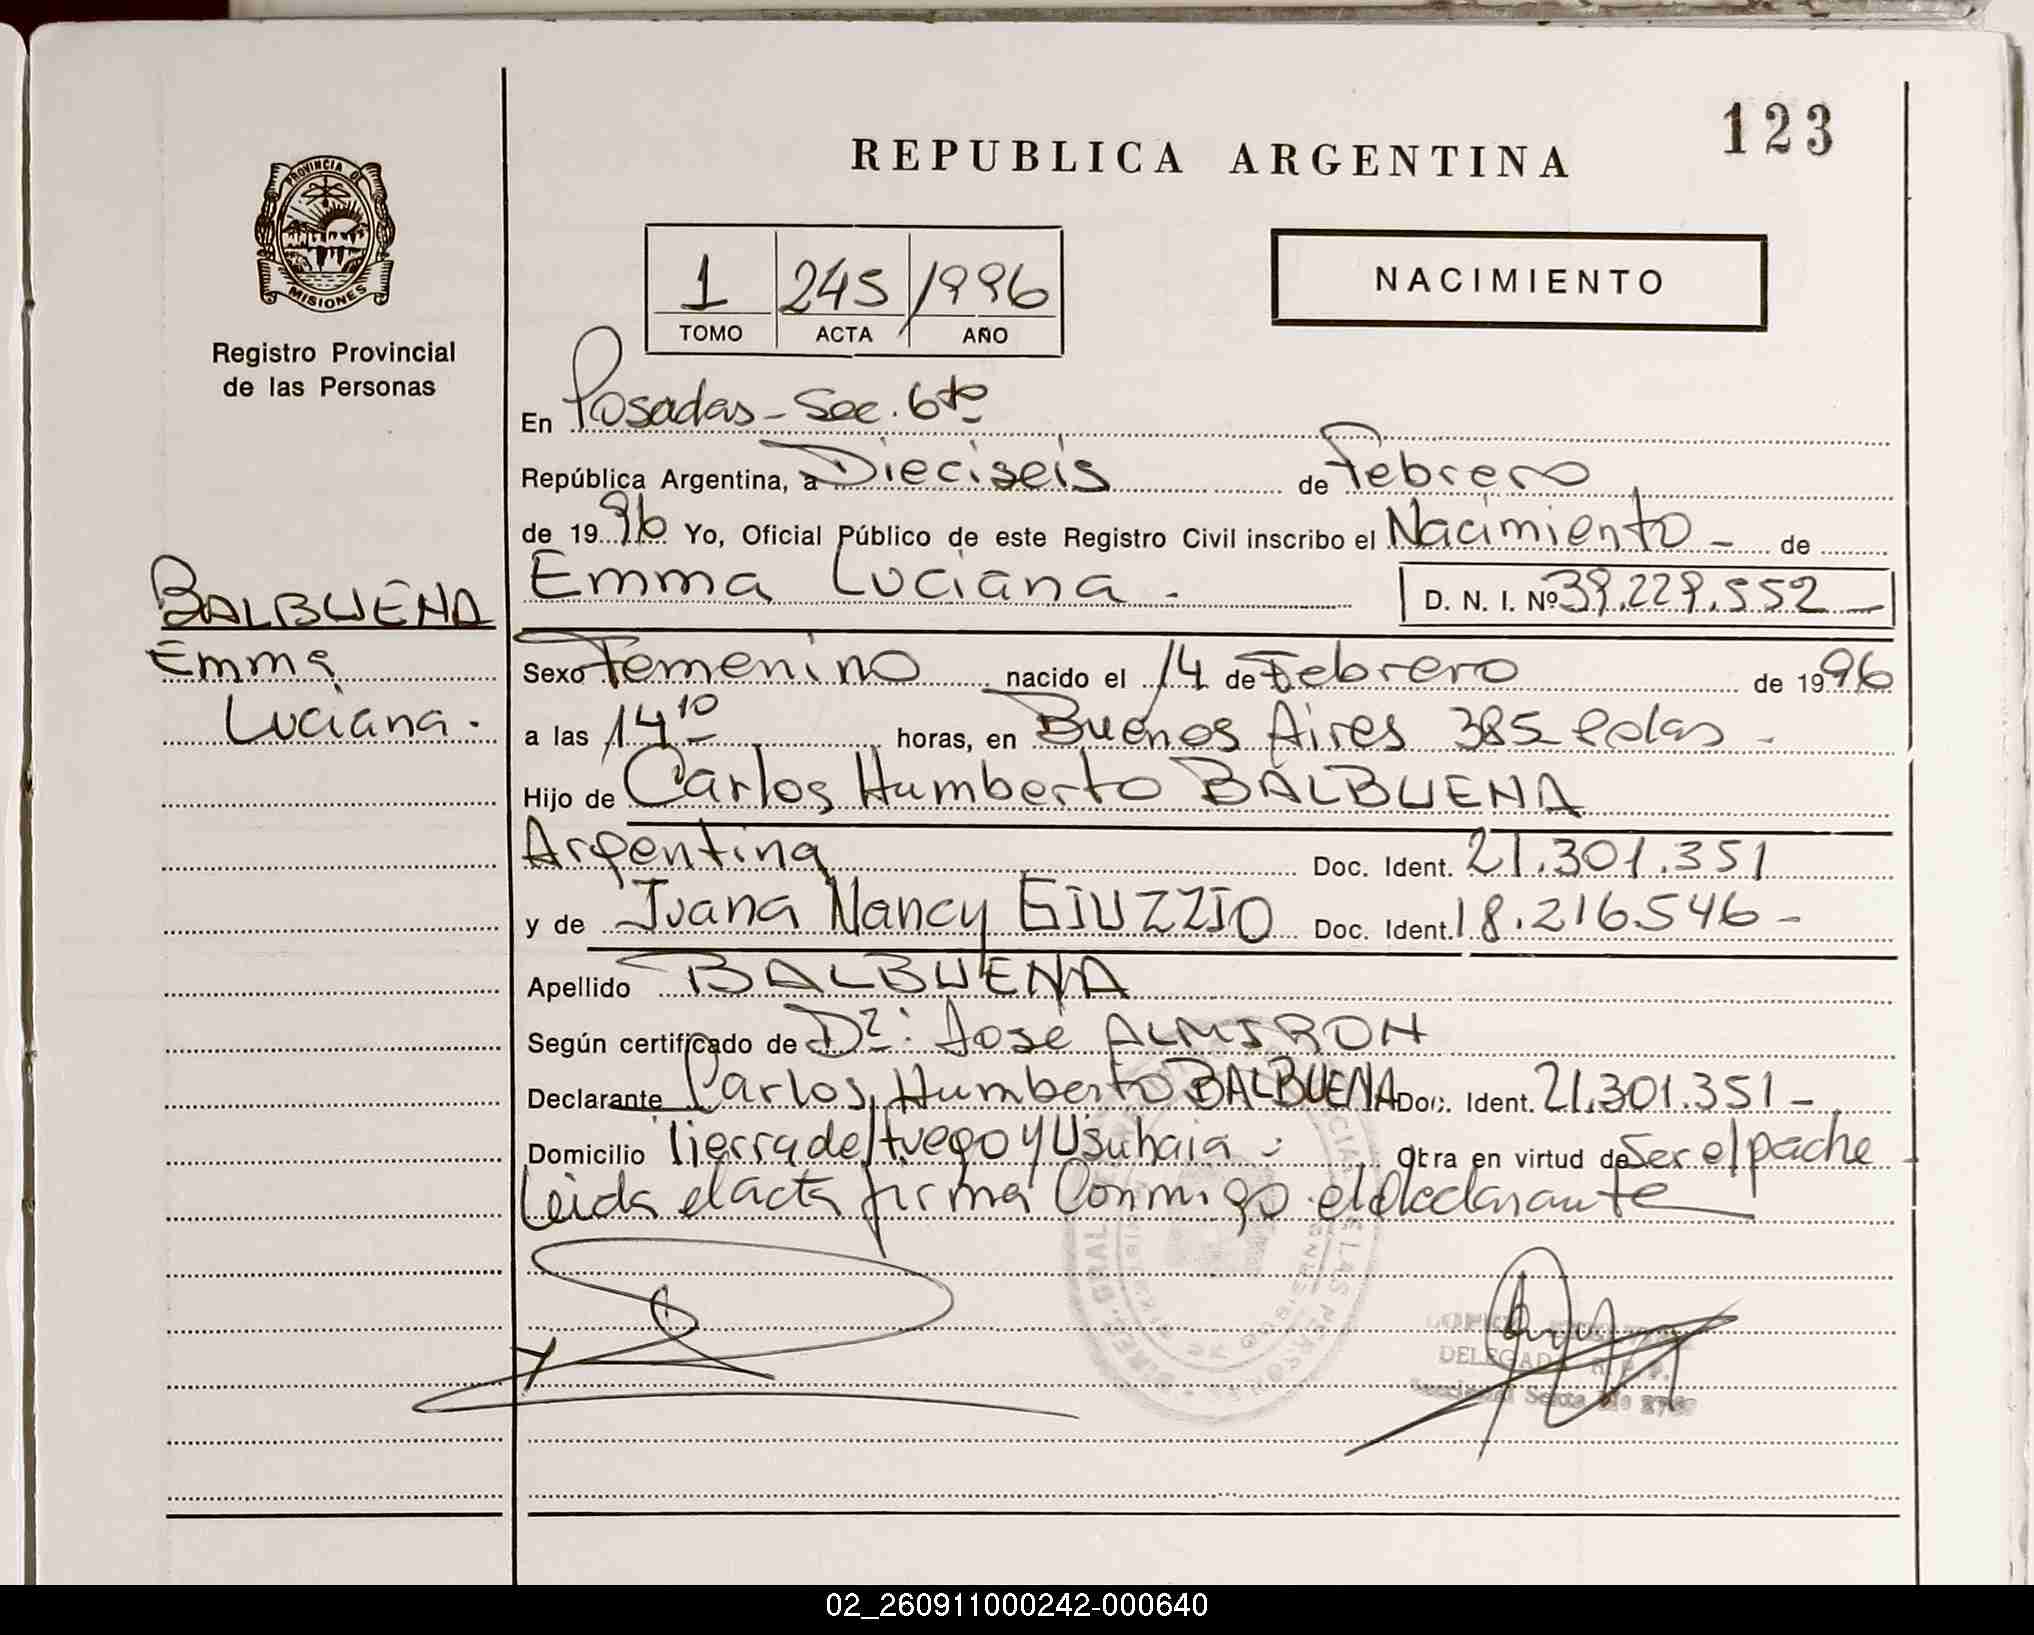 123
REPUBLICA ARGENTINA
PROVINCIA DE
MISIONES
Registro Provincial
de las Personas
NACIMIENTO
1 245 1996
TOMO ACTA AÑO
En Posadas - Sec. 6ta
República Argentina, a Dieciseis de Febrero
de 1996 Yo, Oficial Público de este Registro Civil inscribo el Nacimiento - de
Emma Luciana - D. N. I. Nº 39.229.552
BALBUENA
Emma
Luciana.
Sexo Femenino nacido el 14 de Febrero de 1996
a las 14 10 horas, en Buenos Aires 385 Pdas -
Hijo de Carlos Humberto BALBUENA
Argentina Doc. Ident. 21.301.351
y de Juana Nancy GIUZZIO Doc. Ident. 18.216.546 -
Apellido BALBUENA
Según certificado de Dr: José ALMIRON
Declarante Carlos Humberto BALBUENA Doc. Ident. 21.301.351 -
Domicilio Tierra del fuego y Usuhaia - Obra en virtud de Ser el padre
Leida el acta firma Conmigo el declarante
DELEGADA R.P.P.
02_260911000242-000640